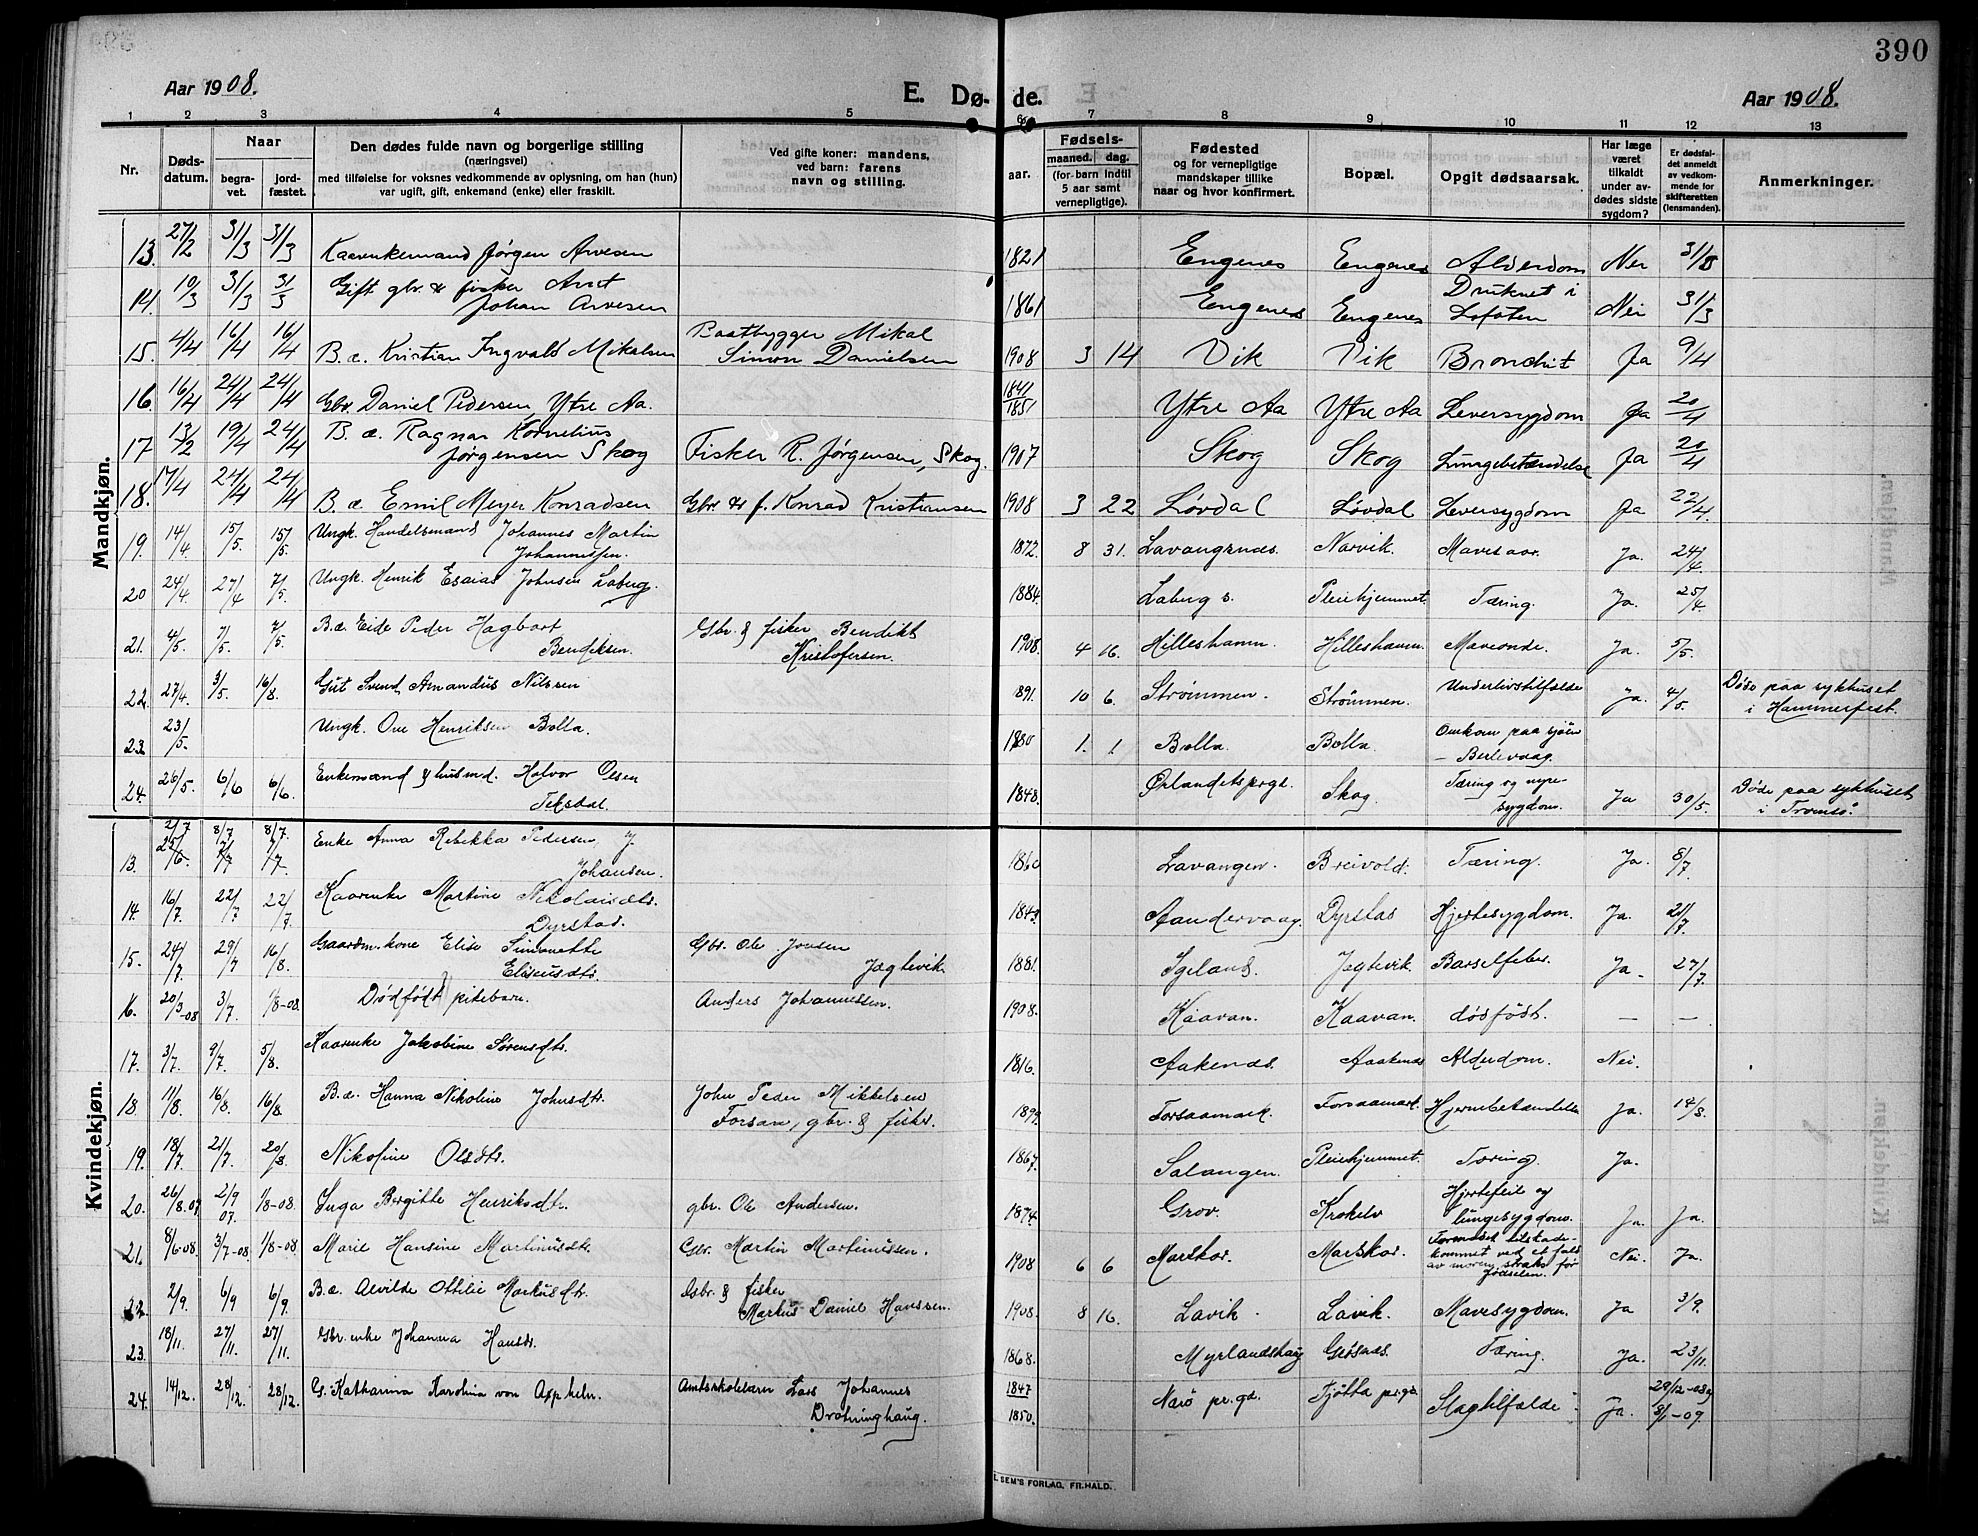 390
Aar 1908.
E. Dø- de.
Aar 1908.
1 2 3 4 5 6 7 8 9 10 11 12 13
Nr.
Døds-
datum.
Naar
begra-
vet.
jord-
fæstet.
Den dødes fulde navn og borgerlige stilling
(næringsvei)
med tilføielse for voksnes vedkommende av oplysning, om han (hun)
var ugift, gift, enkemand (enke) eller fraskilt.
Ved gifte koner: mandens,
ved barn: farens
navn og stilling.
Fødsels-
aar.
maaned. dag.
(for barn indtil
5 aar samt
vernepligtige).
Fødested
og for vernepligtige
mandskaper tillike
naar og hvor konfirmert.
Bopæl.
Opgit dødsaarsak.
Har læge
været
tilkaldt
under av-
dødes sidste
sygdom?
Er dødsfal-
det anmeldt
av vedkom-
mende for
skifteretten
(lensmanden).
Anmerkninger.
Mandkjøn.
13. 27/2 31/3 31/3 Kaarenkemand Jørgen Arvesen 1821 Engenes Engenes Alderdom Nei
14. 10/3 31/3 31/3 Gift gbr. & fisker Arnt
Johan Arvesen 1861 Engenes Engenes Druknet i
Lofoten Nei 31/3
15. 4/4 16/4 16/4 B. æ. Kristian Ingvald Mikalsen Baatbygger Mikal
Simon Danielsen 1908 3 14 Vik Vik Bronchit Ja 9/4
16. 16/4 24/4 24/4 Gbr. Daniel Pedersen, Ytre Aa. 1841/1851 Ytre Aa Ytre Aa Leversygdom Ja 20/4
17 13/2 19/4 24/4 B. æ. Ragnar Kornelius
Jørgensen Skog Fisker R. Jørgensen, Skog. 1907 Skog Skog Lungebetændelse Ja 20/4
18. 17/4 24/4 24/4 B. æ Emil Meyer Konradsen Gbr. & f. Konrad Kristiansen 1908 3 22 Løvdal Løvdal Leversygdom Ja 22/4.
19. 14/4. 15/5. 15/5. Ungk. Handelsmand Johannes Martin
Johannessen. 1872. 8 31. Lavangsnæs. Narvik. Mavesaar. Ja. 24/4.
20 24/4. 27/4 7/5. Ungk. Henrik Esaias Johnsen Laberg. 1884. Laberg s. Pleiehjemmet. Tæring. Ja. 25/4.
21. 4/5. 7/5. 7/5. B.æ. Eide Peder Hagbart
Bendiksen. Gbr. & fisker Bendikt
Kristofersen. 1908. 4 16. Hilleshamn. Hilleshavn. Maveonde. Ja. 5/5.
22. 27/4. 3/5. 16/8. Gut Svend Amandus Nilssen 1891. 10 6. Strømmen. Strömmen. Underlivstilfælde Ja. 4/5. Døde paa sykhuset
i Hammerfest.
23. 23/5. Ungk. Ove Henriksen Bolla. 1880 1. 1 Bolla. Bolla. Omkom paa sjøen
- Berlevaag.
24. 26/5. 6/6 6/6. Enkemand & husmd. Halvor Olsen
Teksdal. 1848. Ørlandets prgl. Skog. Tæring og nyre-
sygdom. Ja 30/5. Døde paa sykhuset
i Tromsö.
Kvindekjøn.
13. 2/7 8/7 8/7. Enke Anna Rebekka Pedersen
Johansen. Lavangen. Breivold. Tæring. Ja. 8/7.
14. 16/7. 22/7 22/7. Kaarenke Martine Nikolaisdtr.
Dyrstad. Aandervaag. Dyrstad Hjertesygdom. Ja. 21/7.
15. 24/7 29/7 16/8. Gaardm. kone Elise Simonette
Eliseusdtr. Gbr. Ole Jonsen
Jægtevik. 1881. Igeland. Jegtevik. Barselfeber. Ja - 27/7.
16. 20/3-08 3/7. 1/8-08. Dødfødt pikebarn. Anders Johannessen. 1908. Kaavan. Kaavan. dødfödt. — —
17. 3/7. 9/7. 5/8. Kaarenke Jakobine Sørensdtr. 1816. Aakenes. Aaakenes Alderdom. Nei.
18. 11/8. 16/8. 16/8 B.æ. Hanna Nikoline Johnsdtr. John Peder Mikkelsen
Forsan, gbr. & fisker. 1899. Forsaamark. Forsaamark. Hjernebetændelse Ja. 14/8.
19. 18/7. 21/7. 20/8. Nikoline Olsdtr. 1867. Salangen. Pleiehjemmet. Tæring. Ja.
20. 26/8.07 2/9 07. 1/8-08. Inga Bergitte Henriksdtr. gbr. Ole Andersen. 1874 Grov. Krokelv Hjertefeil og
lungesygdom. Ja. Ja.
21. 8/6-08. 3/7-08. 1/8-08. Marie Hansine Martinusdtr. Gbr. Martin Martinussen. 1908 6 6 Marskor. Marskor. tilskade-
kommet ved et fald
av moren straks før
fødselen. Nei. Ja.
22. 2/9. 6/9 6/9. B.æ. Alvilde Ottilie Markusdtr. Gbr. & fisker
Markus Daniel Hanssen. 1908. 8 16. Lavik. Lavik. Mavesygdom. Ja 3/9.
23. 18/11. 27/11. 27/11. Gbr. enke Johanna Hansdtr. 1868. Myrlandshaug Grøsnæs. Tæring. Ja. 23/11.
24. 14/12. 28/12. 28/12. G. Katharina Karolina von Appheln. Amtsskolelærer Lars Johannes
Drotninghaug. 1847/1850. Narö pr.gd. Tjötta pr.gd. Slagtilfælde Ja. 29/12-08 8/1-09.
SEM'S FORLAG, FR.HALD.